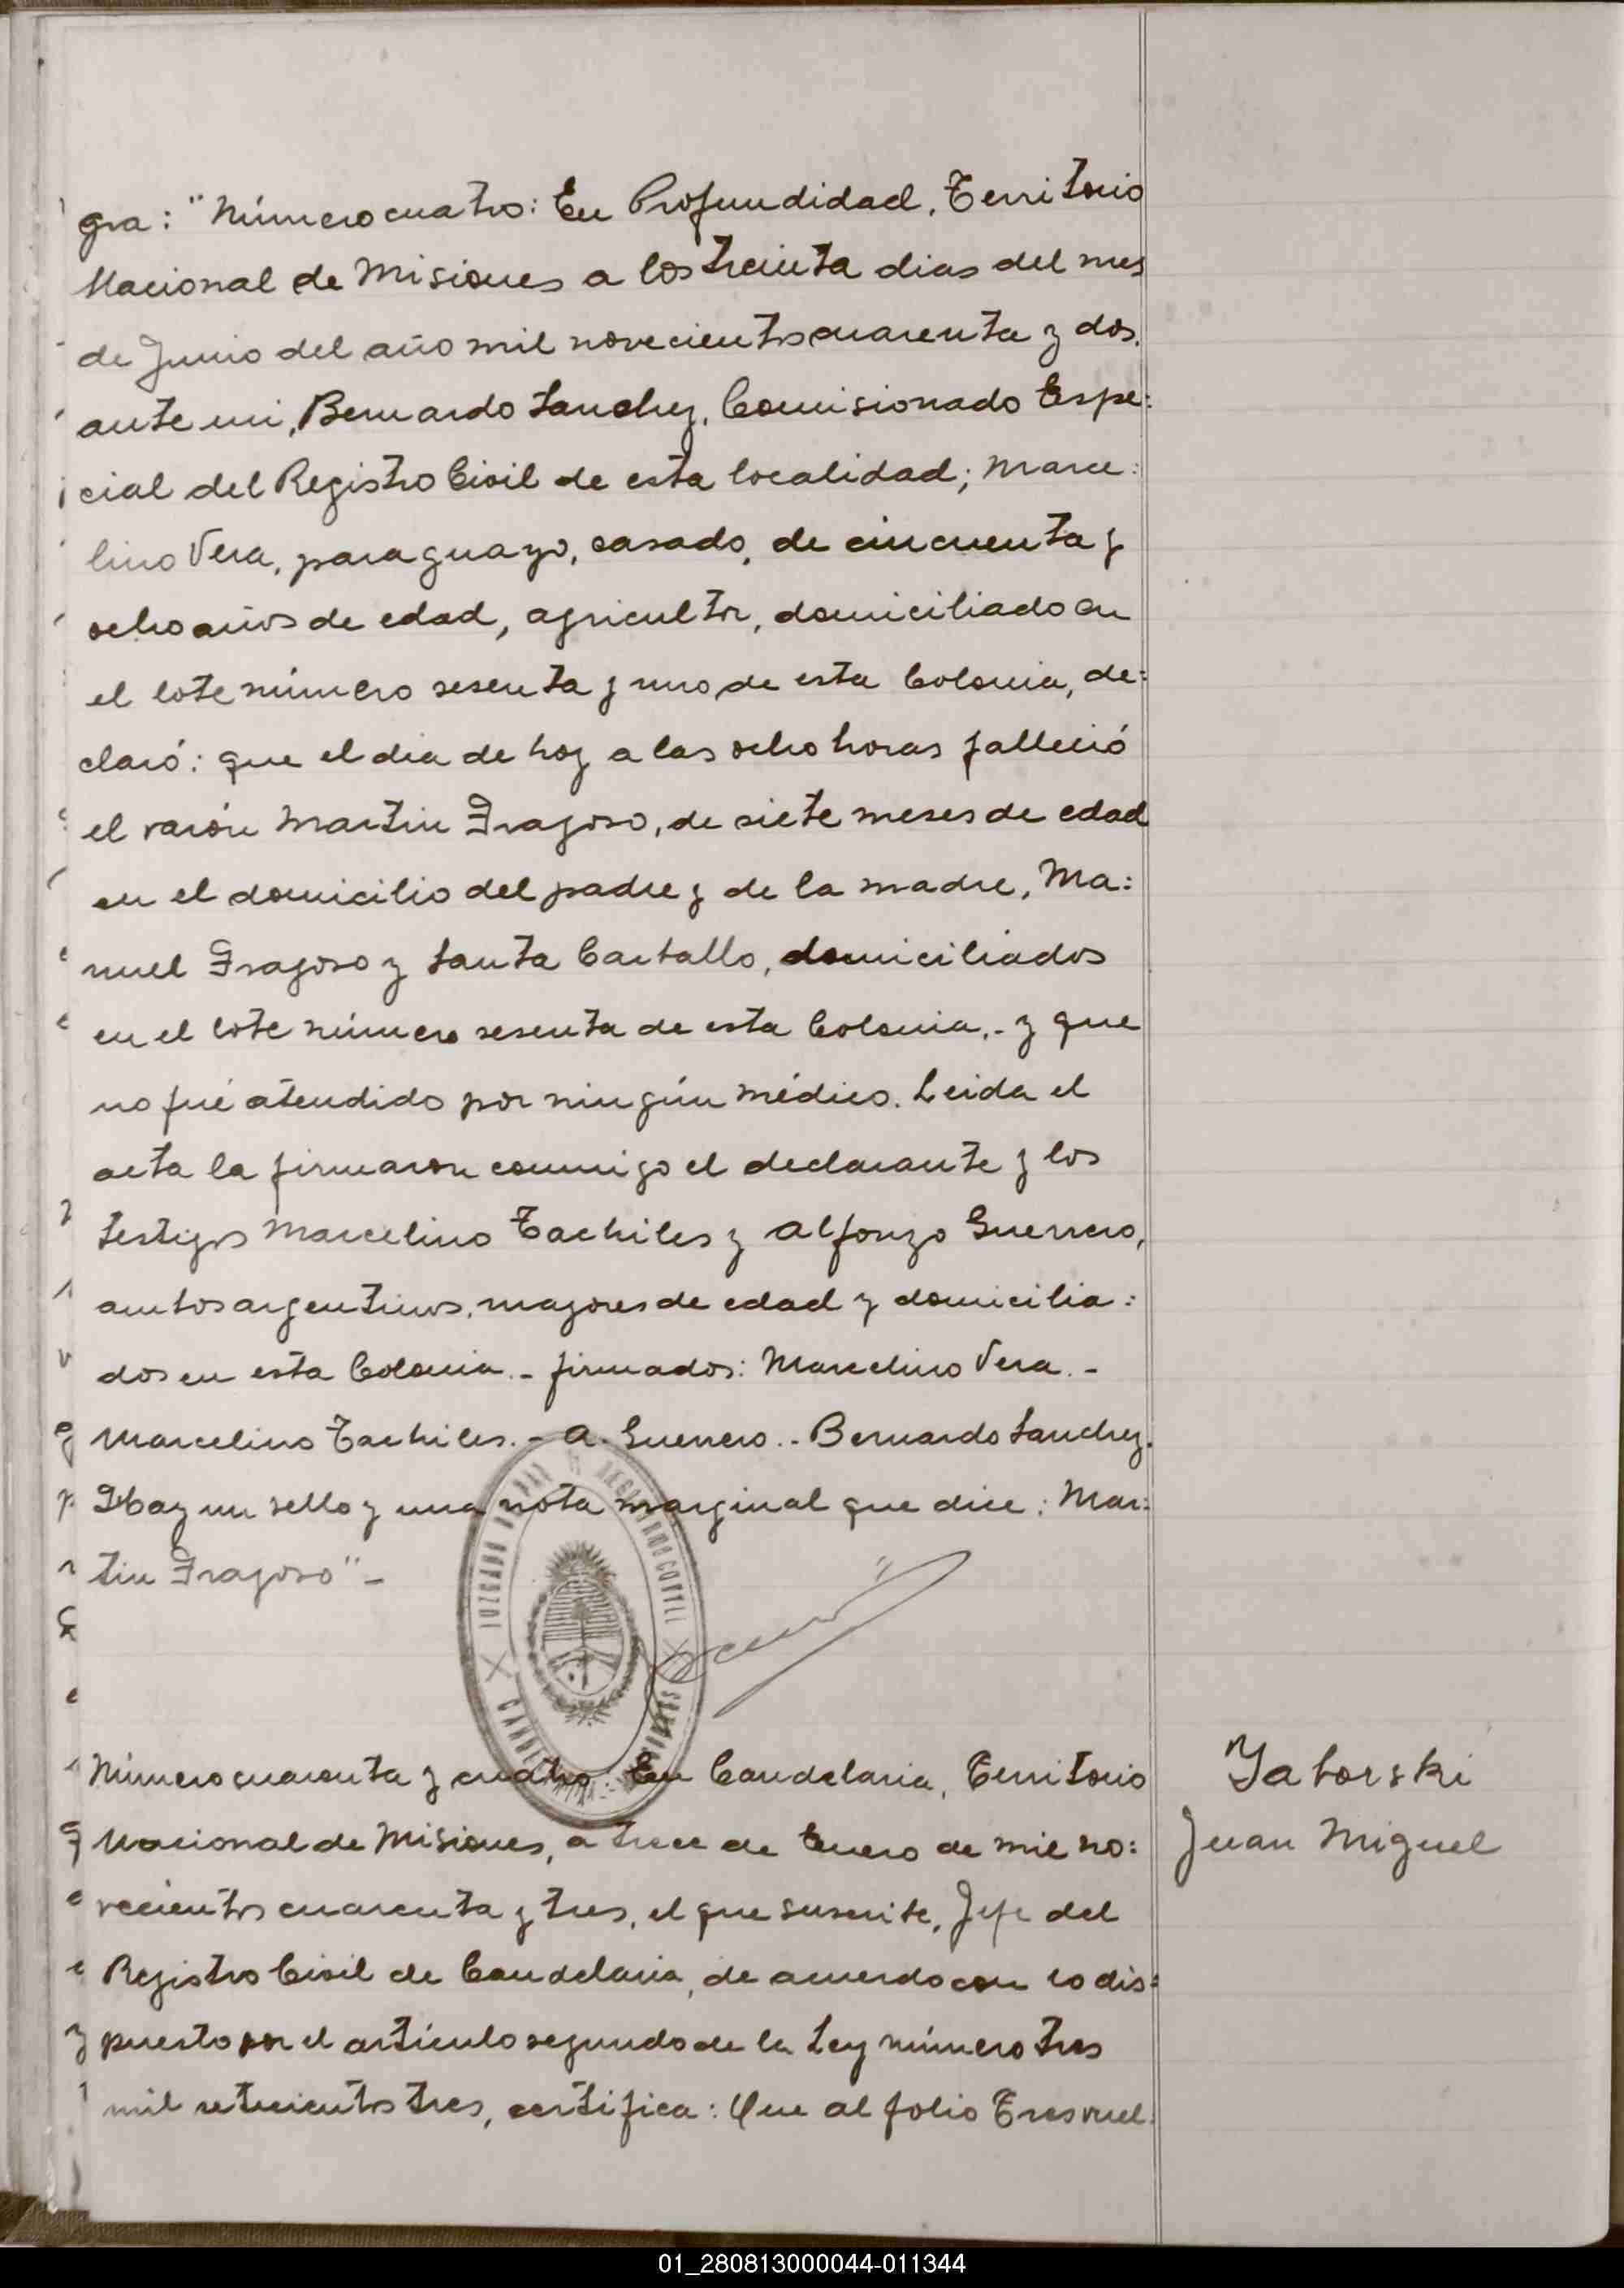 gra: "Número cuatro: En Profundidad, Territorio
Nacional de Misiones a los treinta dias del mes
de Junio del año mil novecientos cuarenta y dos,
ante mi, Bernardo Sanchez, Comisionado Espe=
cial del Registro Civil de esta localidad; Marce=
lino Vera, paraguayo, casado, de cincuenta y
ocho años de edad, agricultor, domiciliado en
el lote número sesenta y uno de esta Colonia, de=
claró: que el dia de hoy a las ocho horas falleció
el varón Martin Fragoso, de siete meses de edad
en el domicilio del padre y de la madre, Ma=
nuel Fragoso y Santa Carballo, domiciliados
en el lote número sesenta de esta Colonia.- y que
no fué atendido por ningún médico. Leida el
acta la firmaron conmigo el declarante y los
testigos Marcelino Tachiles y Alfonzo Guerrero,
ambos argentinos, mayores de edad y domicilia=
dos en esta Colonia.- firmados: Marcelino Vera.-
Marcelino Tachiles.- A. Guerrero.- Bernardo Sanchez.
Hay un sello y una nota marginal que dice: Mar=
tin Fragoso"-
JUZGADO DE PAZ
Número cuarenta y cuatro: En Candelaria, Territorio
Nacional de Misiones, a trece de Enero de mil no=
vecientos cuarenta y tres, el que suscribe, Jefe del
Registro Civil de Candelaria, de acuerdo con lo dis=
puesto por el artículo segundo de la Ley número tres
mil setecientos tres, certifica: Que al folio tres vuel=
Yaborski
Juan Miguel
01_280813000044-011344